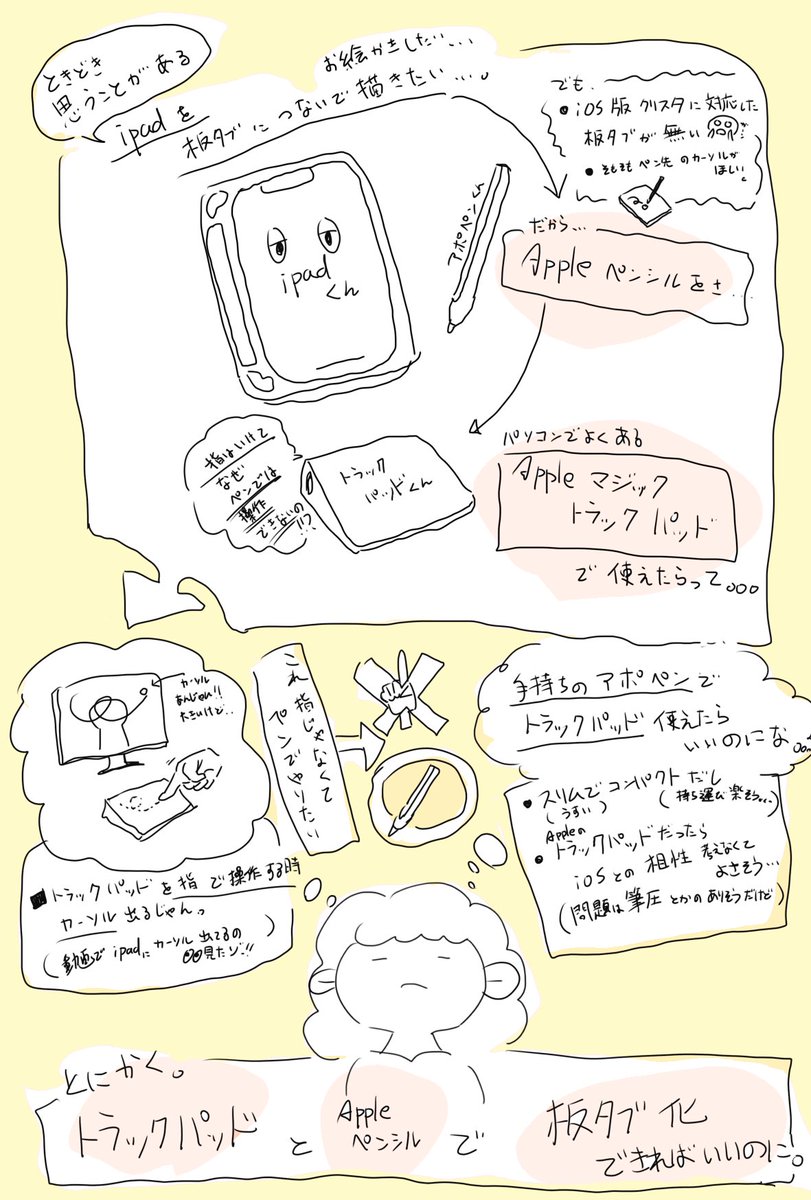 ときどき
思うことがある
お絵かきしたい...
ipadを
板タブにつないで描きたい...。
でも、
●iOS版クリスタに対応した
板タブが無い
●そもそもペン先のカーソルが
ほしい。
だから...
Appleペンシルをさ...
アポペンくん
ipad
くん
パソコンでよくある
Appleマジック
トラックパッド
で使えたらって。。。
指はいけて
なぜ
ペンでは
操作
できないの!!?
トラック
パッドくん
カーソル
あんじゃん!!
大きいけど..
これ指じゃなくて
ペンでやりたい
手持ちのアポペンで
トラックパッド使えたら
いいのにな...
●スリムでコンパクトだし
(うすい)
(持ち運び楽そう...)
Appleの
●トラックパッドだったら
iOSとの相性考えなくて
よさそう...
(問題は筆圧とかのありそうだけど)
■トラックパッドを指で操作する時
カーソル出るじゃんっ
(動画でipadにカーソル出てるの
見たゾ!!)
とにかく。
トラックパッドと
Apple
ペンシルで
板タブ化
できればいいのに。